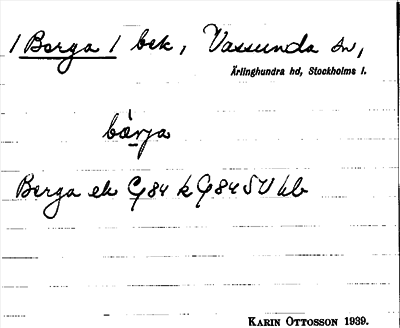 / Berga / bek, Vassunda sn,
Ärlinghundra hd, Stockholms l.
bärja
Berga ek G84 k G84 SV kb
KARIN OTTOSSON 1939.